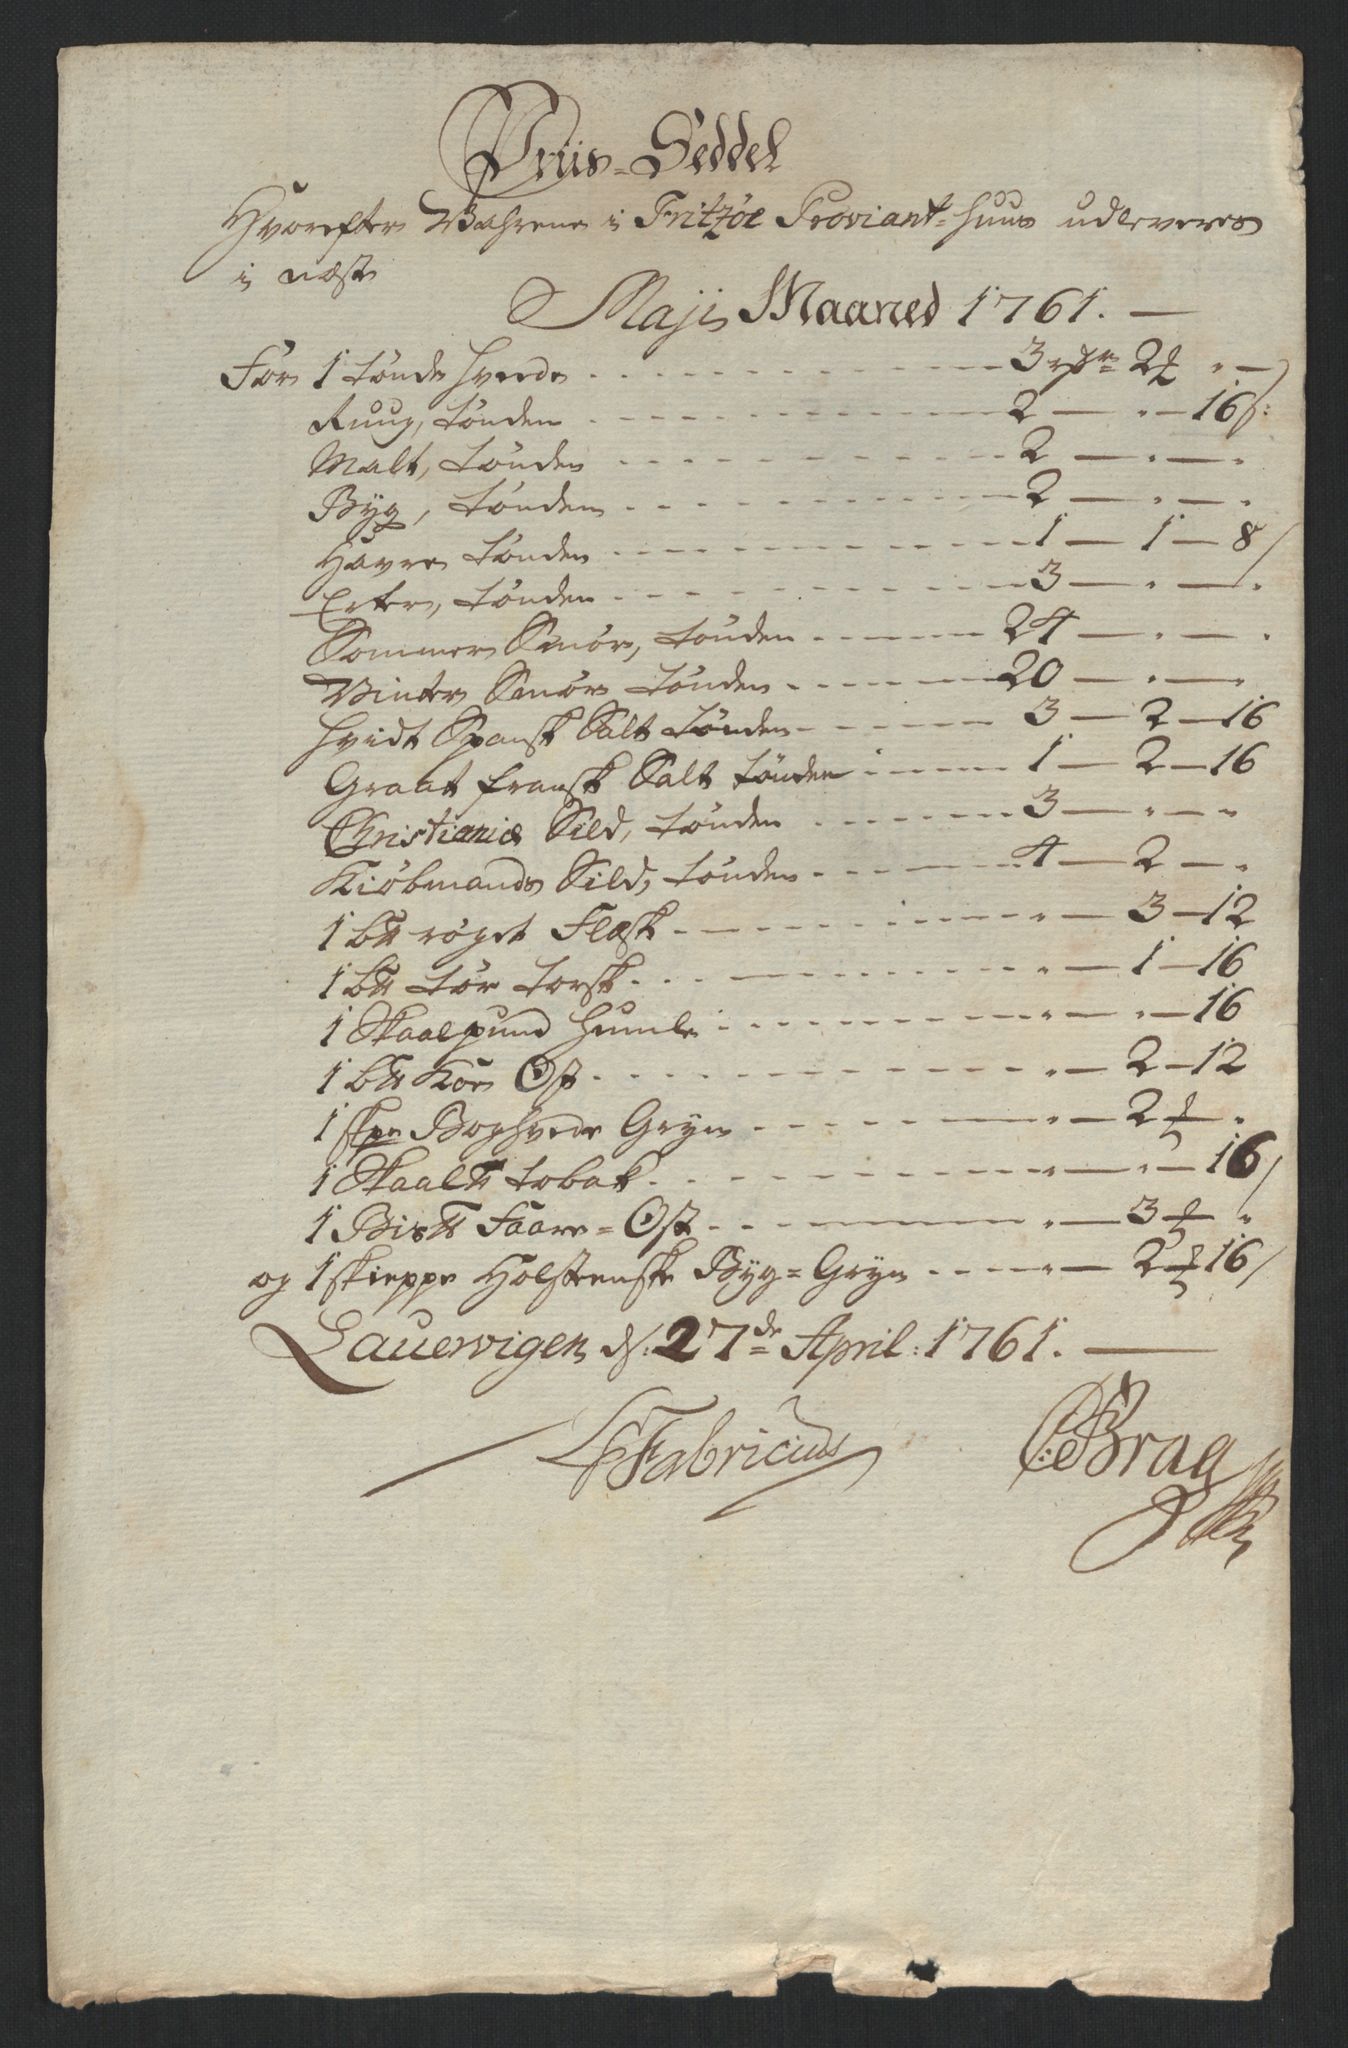 Priis-Seddel
Hvorefter Wahrene i Fritzöe Proviant-huus udleveres
i næste
Maji Maaned 1761. —
For 1 tönde hvede . . . . 3 rdr 2 ₰ " —
Ruug, tönden . . . . 2 — " — 16 s:
Malt, tönden . . . . 2 — " — "
Byg, tönden . . . . 2 — " — "
Havre tönden . . . . 1 — 1 — 8/
Erter, tönden . . . . 3 — " — "
Sommer Smör, tönden . . . . 24 — " — "
Vinter Smör tönden . . . . 20 — " — "
hvidt Spansk Salt tönden . . . . 3 — 2 — 16
Graat fransk Salt tönden . . . . 1 — 2 — 16
Christiania Sild, tönden . . . . 3 — " — "
Kiöbmands Sild, tönden . . . . 4 — 2 — "
1 b℔ röget Flæsk . . . . " — 3 — 12
1 b℔ tör torsk . . . . " — 1 — 16
1 Skaalpund humle . . . . " — " — 16
1 b℔ Koe Ost . . . . " — 2 — 12
1 skpe Boghvede Gryn . . . . " — 2 ₰ "
1 Skaal℔ tobak . . . . " — " — 16/
1 Bis℔ Faare-Ost . . . . " — 3 ₰ "
og 1 skieppe Holstensk Byg-Gryn . . . . " — 2 ₰ 16/
Lauervigen d: 27de April: 1761. —
Fabricius Brag